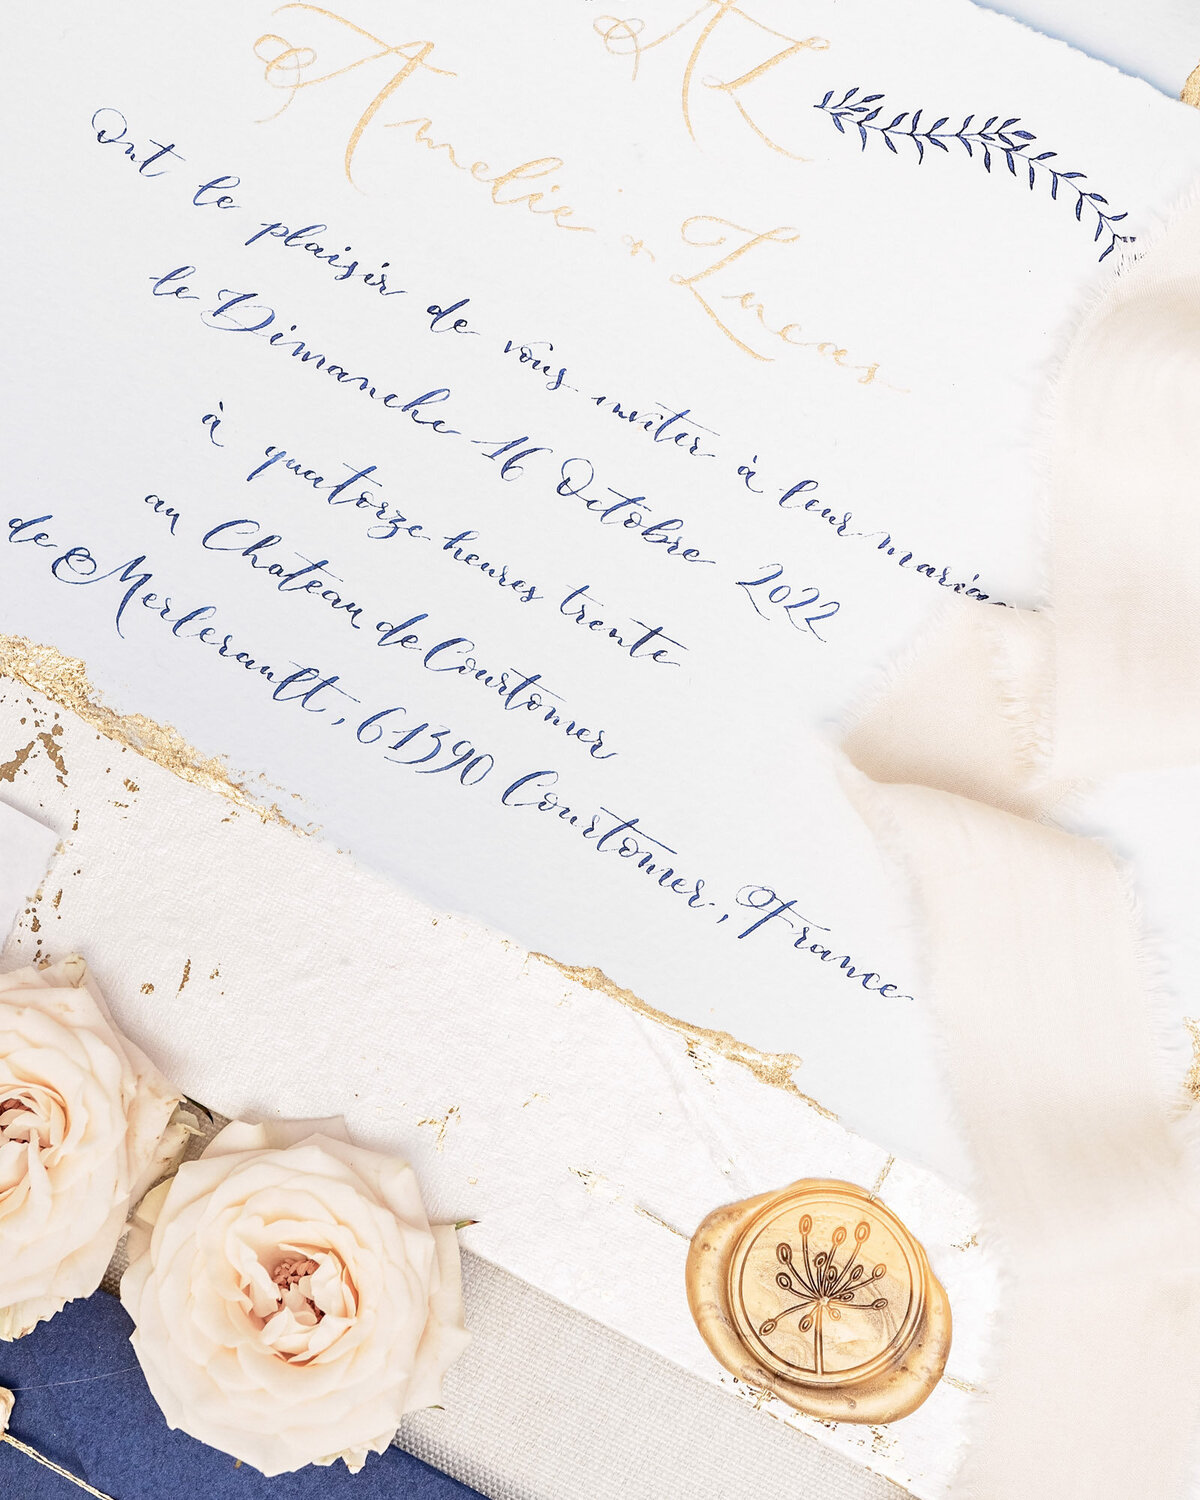 AL
Amelie & Lucas
Ont le plaisir de vous inviter à leur maria
le Dimanche 16 Octobre 2022
à quatorze heures trente
au Chateau de Courtomer
de Merlerault, 61390 Courtomer, France